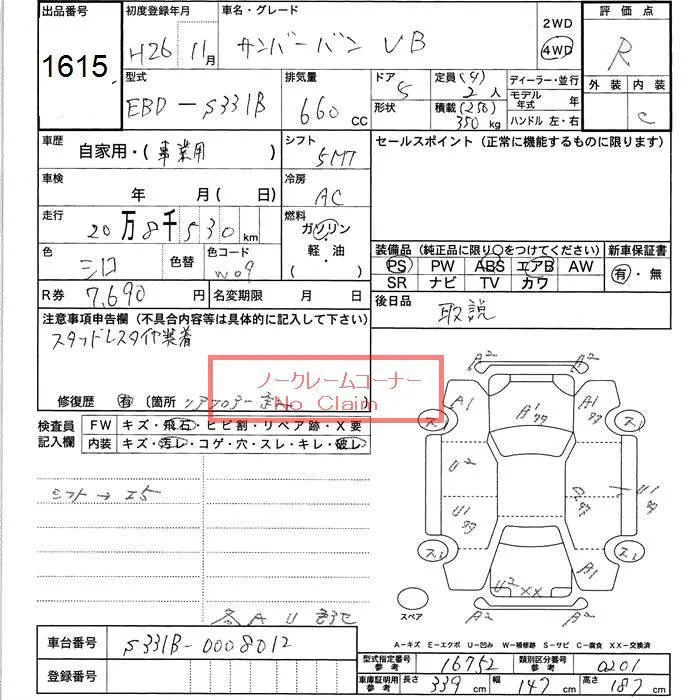 出品番号 初度登録年月 車名・グレード 2WD 評価点
1615 H26 11月 サンバーバン VB 4WD R
型式 排気量 ドア 定員(4) ディーラー・並行 外装 内装
EBD-S331B 660 CC 5 2人 モデル年式 年 C
形状 積載(250) 350kg ハンドル 左・右
車歴 自家用・(事業用) シフト 5MT セールスポイント(正常に機能するものに限ります)
車検 年 月(日) 冷房 AC
走行 20万8千530km 燃料 ガソリン
軽・油
・( )
色 シロ 色替 色コード W09 装備品(純正品に限り○をつけてください) 新車保証書
PS PW ABS エアB AW 有・無
SR ナビ TV カワ
R券 7,690円 名変期限 月 日 後日品 取説
注意事項申告欄(不具合内容等は具体的に記入して下さい)
スタッドレスタイヤ装着
ノークレームコーナー
No Claim
修復歴 有(箇所
検査員記入欄 FW キズ・飛石・ヒビ割・リペア跡・X要
内装 キズ・汚レ・コゲ・穴・スレ・キレ・破レ
A2 A2
A1 A1
U2
U1 U1
A1
U2 XX
スレ スレ
スレ スレ
シフト→
スペア
各AU
A-キズ E-エクボ U-凹み W-補修跡 S-サビ C-腐食 XX-交換済
車台番号 S331B-0008012
登録番号
型式指定番号参考 16752 類別区分番号参考 0201
車庫証明用参考 長さ 339cm 幅 147cm 高さ 187cm